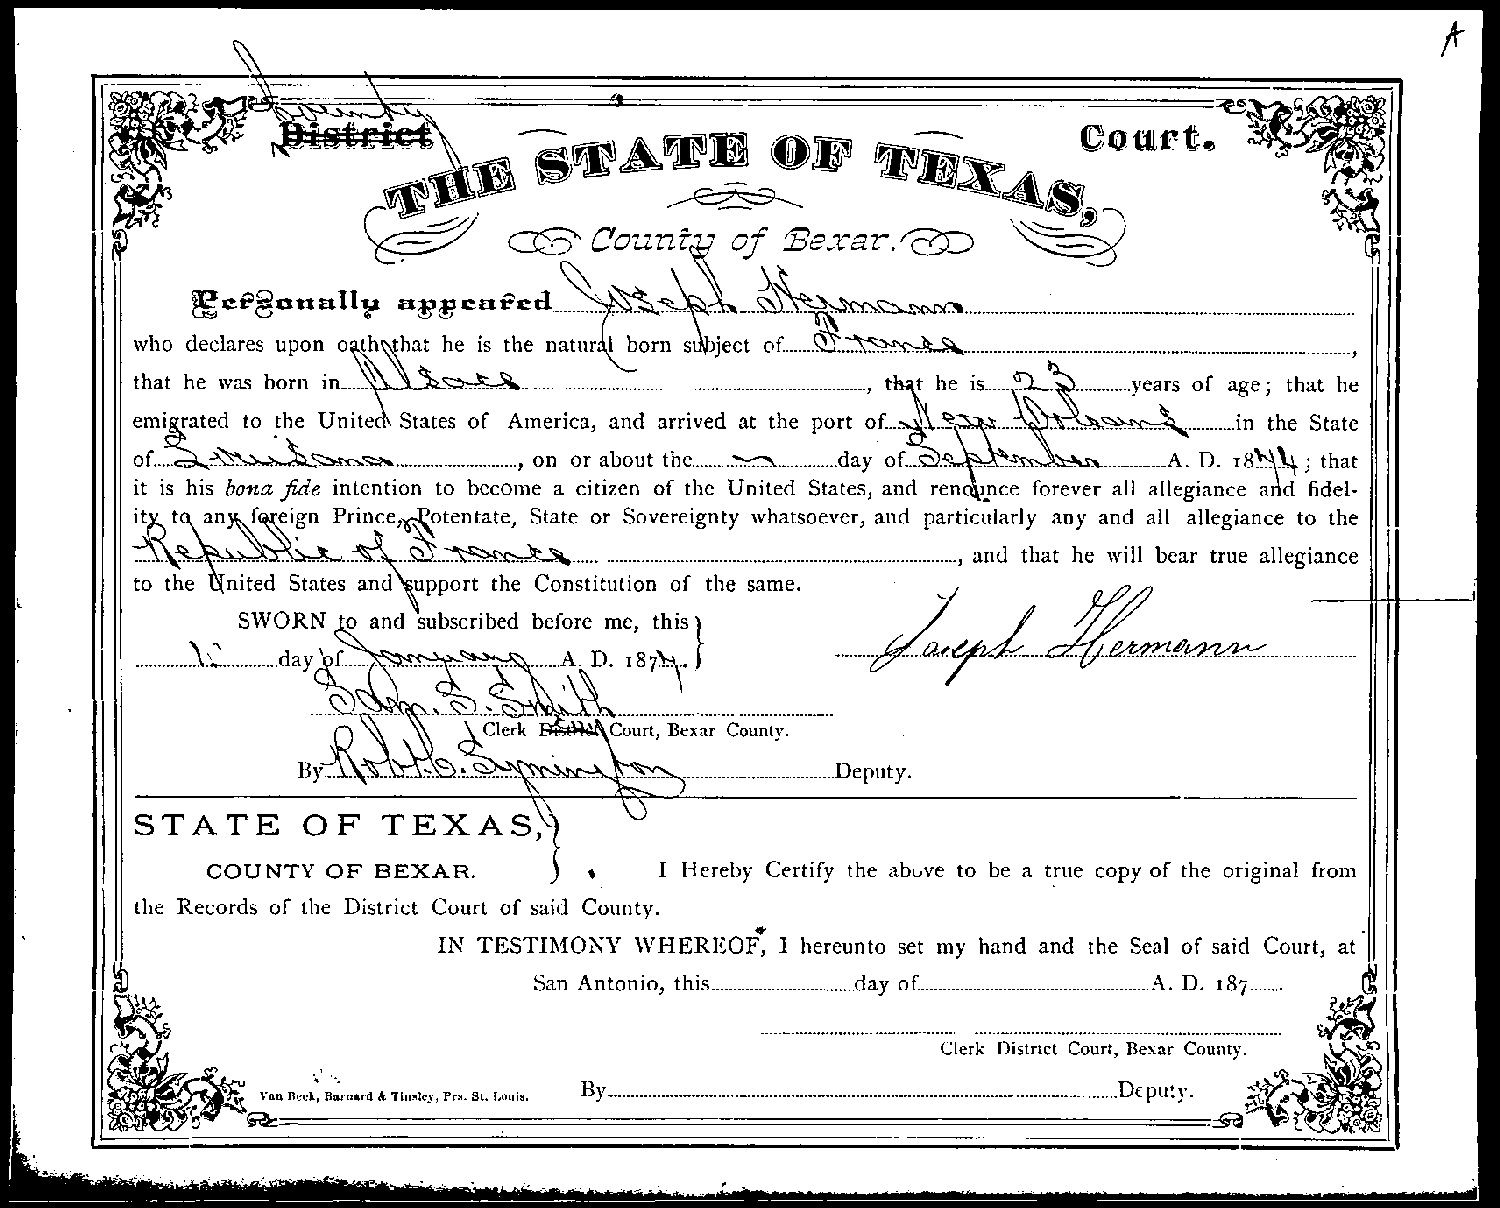 A
County
District Court.
THE STATE OF TEXAS,
County of Bexar.
Personally appeared Joseph Hermann
who declares upon oath that he is the natural born subject of France,
that he was born in Alsace, that he is 23 years of age; that he
emigrated to the United States of America, and arrived at the port of New Orleans in the State
of Louisiana, on or about the — day of September A. D. 18; that
it is his bona fide intention to become a citizen of the United States, and renounce forever all allegiance and fidel-
ity to any foreign Prince, Potentate, State or Sovereignty whatsoever, and particularly any and all allegiance to the
Republic of France, and that he will bear true allegiance
to the United States and support the Constitution of the same.
SWORN to and subscribed before me, this
day of January A. D. 187 .
Joseph Hermann
Sam. S. Smith
Clerk District Court, Bexar County.
By Robt. C. Symington Deputy.
STATE OF TEXAS,
COUNTY OF BEXAR. I Hereby Certify the above to be a true copy of the original from
the Records of the District Court of said County.
IN TESTIMONY WHEREOF, I hereunto set my hand and the Seal of said Court, at
San Antonio, this day of A. D. 187
Clerk District Court, Bexar County.
Van Beek, Barnard & Tinsley, Prs. St. Louis. By Deputy.